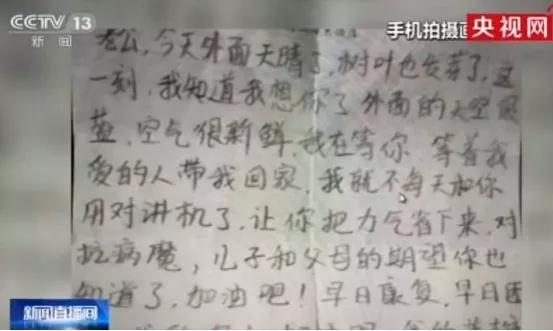 CCTV 13
新闻
手机拍摄画
央视网
老公,今天外面天晴了,树叶也发芽了,这
一刻,我知道我想你了 外面的天空很
蓝,空气很新鲜,我在等你 等着我
爱的人带我回家,我就不每天和你
用对讲机了,让你把力气省下来,对
抗病魔,儿子和父母的期望你也
知道了,加油吧!早日康复,早日团
新闻直播间